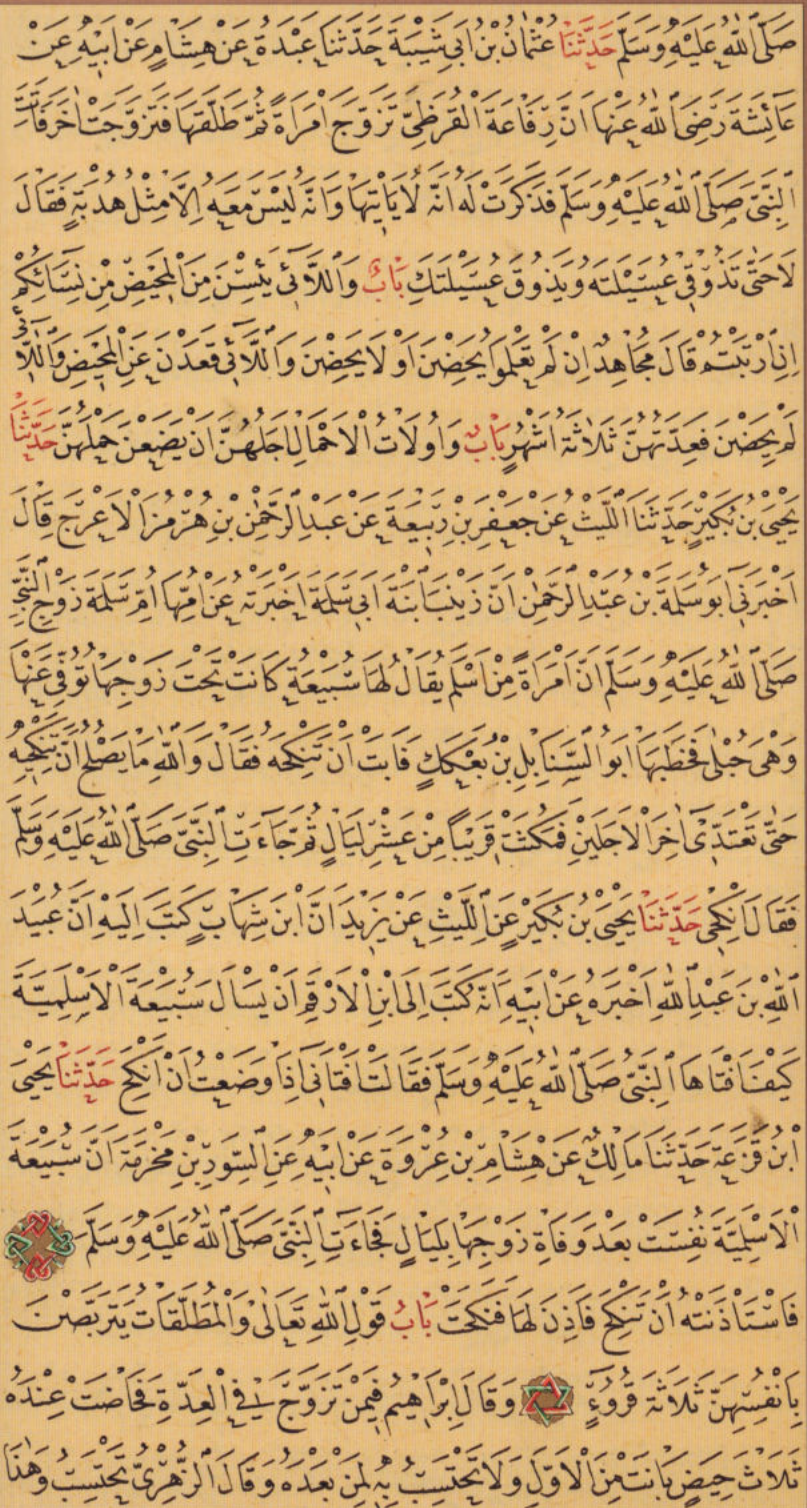 صَلَّى اللّٰهُ عَلَيْهِ وَسَلَّمَ حَدَّثَنَا عُثْمَانُ بْنُ اَبِي شَيْبَةَ حَدَّثَنَا عَبْدَةُ عَنْ هِشَامٍ عَنْ اَبِيهِ عَنْ
عَائِشَةَ رَضِيَ اللّٰهُ عَنْهَا اَنَّ رِفَاعَةَ الْقُرَظِيَّ تَزَوَّجَ امْرَاَةً ثُمَّ طَلَّقَهَا فَتَزَوَّجَتْ اٰخَرَ فَاَتَتِ
النَّبِيَّ صَلَّى اللّٰهُ عَلَيْهِ وَسَلَّمَ فَذَكَرَتْ لَهُ اَنَّهُ لَا يَاْتِيهَا وَاَنَّهُ لَيْسَ مَعَهُ اِلَّا مِثْلُ هُدْبَةٍ فَقَالَ
لَا حَتّٰى تَذُوقِي عُسَيْلَتَهُ وَيَذُوقَ عُسَيْلَتَكِ بَابٌ وَاللَّائِي يَئِسْنَ مِنَ الْمَحِيضِ مِنْ نِسَائِكُمْ
اِنِ ارْتَبْتُمْ قَالَ مُجَاهِدٌ اِنْ لَمْ تَعْلَمُوا يَحِضْنَ اَوْ لَا يَحِضْنَ وَاللَّائِي قَعَدْنَ عَنِ الْمَحِيضِ وَاللَّائِي
لَمْ يَحِضْنَ فَعِدَّتُهُنَّ ثَلَاثَةُ اَشْهُرٍ بَابٌ وَاُولَاتُ الْاَحْمَالِ اَجَلُهُنَّ اَنْ يَضَعْنَ حَمْلَهُنَّ حَدَّثَنَا
يَحْيَى بْنُ بُكَيْرٍ حَدَّثَنَا اللَّيْثُ عَنْ جَعْفَرِ بْنِ رَبِيعَةَ عَنْ عَبْدِ الرَّحْمٰنِ بْنِ هُرْمُزَ الْاَعْرَجِ قَالَ
اَخْبَرَنِي اَبُو سَلَمَةَ بْنُ عَبْدِ الرَّحْمٰنِ اَنَّ زَيْنَبَ ابْنَةَ اَبِي سَلَمَةَ اَخْبَرَتْهُ عَنْ اُمِّهَا اُمِّ سَلَمَةَ زَوْجِ النَّبِيِّ
صَلَّى اللّٰهُ عَلَيْهِ وَسَلَّمَ اَنَّ امْرَاَةً مِنْ اَسْلَمَ يُقَالُ لَهَا سُبَيْعَةُ كَانَتْ تَحْتَ زَوْجِهَا تُوُفِّيَ عَنْهَا
وَهْيَ حُبْلٰى فَخَطَبَهَا اَبُو السَّنَابِلِ بْنُ بَعْكَكٍ فَاَبَتْ اَنْ تَنْكِحَهُ فَقَالَ وَاللّٰهِ مَا يَصْلُحُ اَنْ تَنْكِحِيهِ
حَتّٰى تَعْتَدِّي اٰخِرَ الْاَجَلَيْنِ فَمَكُثَتْ قَرِيبًا مِنْ عَشْرِ لَيَالٍ ثُمَّ جَاءَتِ النَّبِيَّ صَلَّى اللّٰهُ عَلَيْهِ وَسَلَّمَ
فَقَالَ انْكِحِي حَدَّثَنَا يَحْيَى بْنُ بُكَيْرٍ عَنِ اللَّيْثِ عَنْ يَزِيدَ اَنَّ ابْنَ شِهَابٍ كَتَبَ اِلَيْهِ اَنَّ عُبَيْدَ
اللّٰهِ بْنَ عَبْدِ اللّٰهِ اَخْبَرَهُ عَنْ اَبِيهِ اَنَّهُ كَتَبَ اِلَى ابْنِ الْاَرْقَمِ اَنْ يَسْاَلَ سُبَيْعَةَ الْاَسْلَمِيَّةَ
كَيْفَ اَفْتَاهَا النَّبِيُّ صَلَّى اللّٰهُ عَلَيْهِ وَسَلَّمَ فَقَالَتْ اَفْتَانِي اِذَا وَضَعْتُ اَنْ اَنْكِحَ حَدَّثَنَا يَحْيَى
ابْنُ قَزَعَةَ حَدَّثَنَا مَالِكٌ عَنْ هِشَامِ بْنِ عُرْوَةَ عَنْ اَبِيهِ عَنِ الْمِسْوَرِ بْنِ مَخْرَمَةَ اَنَّ سُبَيْعَةَ
الْاَسْلَمِيَّةَ نُفِسَتْ بَعْدَ وَفَاةِ زَوْجِهَا بِلَيَالٍ فَجَاءَتِ النَّبِيَّ صَلَّى اللّٰهُ عَلَيْهِ وَسَلَّمَ
فَاسْتَاْذَنَتْهُ اَنْ تَنْكِحَ فَاَذِنَ لَهَا فَنَكَحَتْ بَابُ قَوْلِ اللّٰهِ تَعَالٰى وَالْمُطَلَّقَاتُ يَتَرَبَّصْنَ
بِاَنْفُسِهِنَّ ثَلَاثَةَ قُرُوءٍ وَقَالَ اِبْرَاهِيمُ فِيمَنْ تَزَوَّجَ فِي الْعِدَّةِ فَحَاضَتْ عِنْدَهُ
ثَلَاثَ حِيَضٍ بَانَتْ مِنَ الْاَوَّلِ وَلَا تَحْتَسِبُ بِهِ لِمَنْ بَعْدَهُ وَقَالَ الزُّهْرِيُّ تَحْتَسِبُ وَهٰذَا